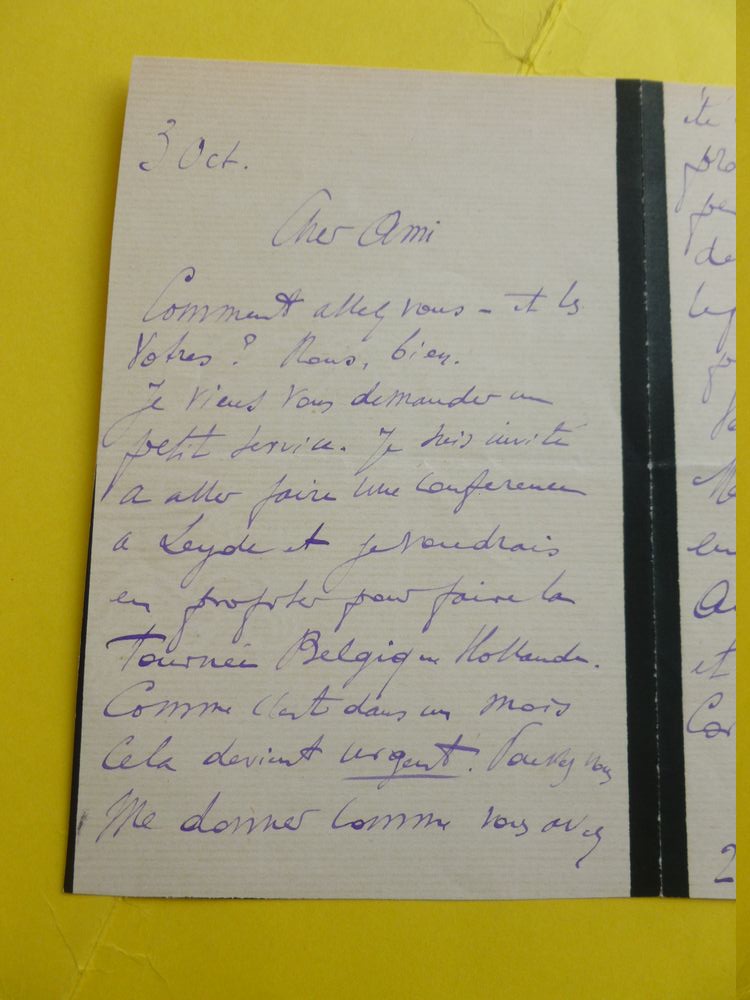 3 Oct.
Cher Ami
Comment allez vous - et les
Votres? Nous, bien.
Je viens vous demander un
petit service. Je suis invité
a aller faire une conference
a Leyde et je voudrais
en profiter pour faire la
Tournée Belgique Hollande.
Comme c'est dans un mois
Cela devient urgent. Pouvez vous
Me donner comme vous avez
été
pro
de
et
2